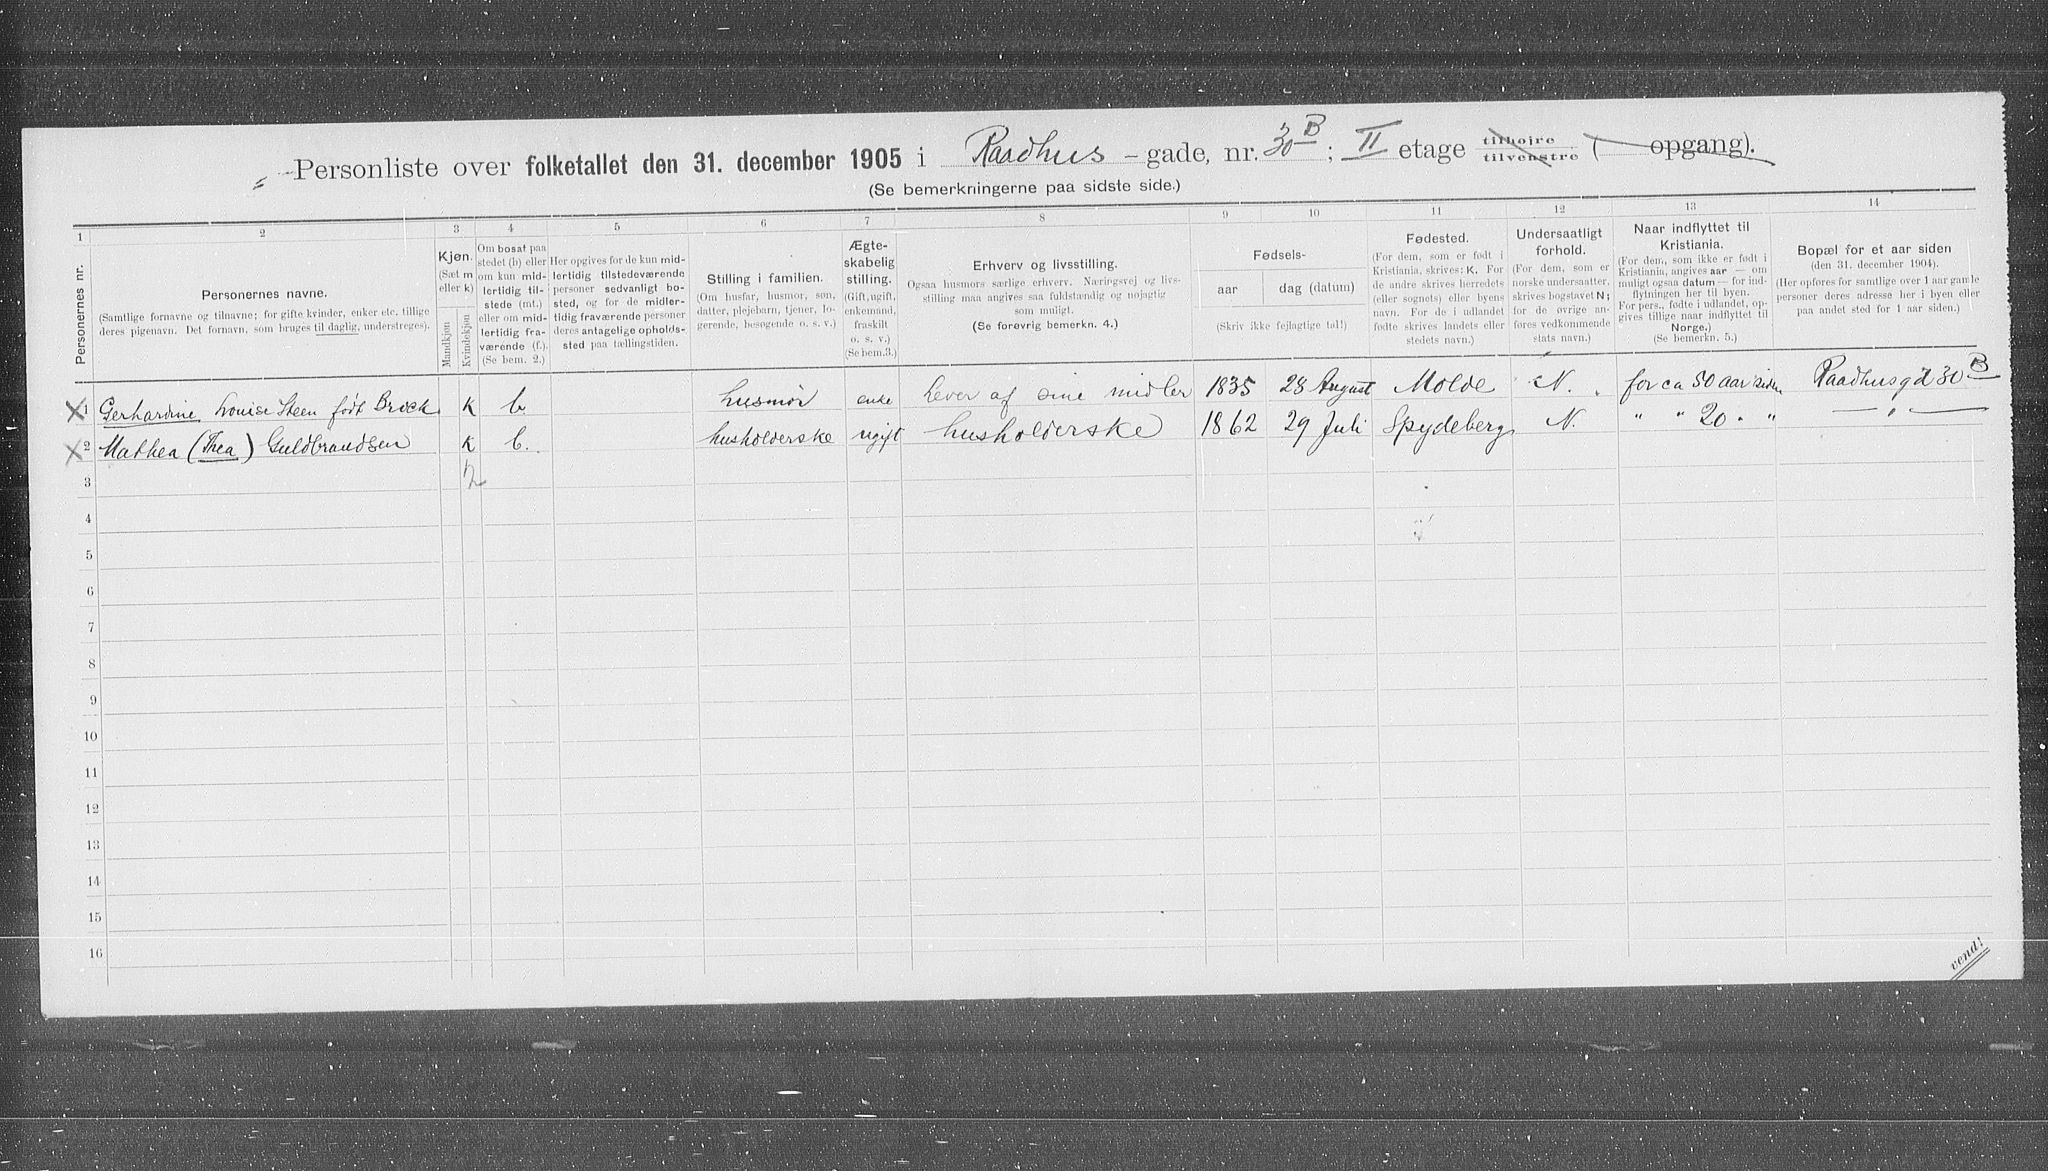 Personliste over folketallet den 31. december 1905 i Raadhus - gade, nr. 30 B ; II etage tilhøire tilvenstre ( opgang).
(Se bemerkningerne paa sidste side.)
1 2 3 4 5 6 7 8 9 10 11 12 13 14
Personernes nr.
Personernes navne.
(Samtlige fornavne og tilnavne; for gifte kvinder, enker etc. tillige
deres pigenavn. Det fornavn, som bruges til daglig, understreges).
Kjøn.
(Sæt m
eller k)
Mandkjøn
Kvindekjøn
Om bosat paa
stedet (b) eller
om kun mid-
lertidig til-
stede (mt.)
eller om mid-
lertidig fra-
værende (f.).
(Se bem. 2.)
Her opgives for de kun mid-
lertidig tilstedeværende
personer sedvanligt bo-
sted, og for de midler-
tidig fraværende personer
deres antagelige opholds-
sted paa tællingstiden.
Stilling i familien.
(Om husfar, husmor, søn,
datter, plejebarn, tjener, lo-
gerende, besøgende o. s. v.)
Ægte-
skabelig
stilling.
(Gift, ugift,
enkemand,
fraskilt
o. s. v.)
(Se bem.3.)
Erhverv og livsstilling.
Ogsaa husmors særlige erhverv. Næringsvej og livs-
stilling maa angives saa fuldstændig og nøjagtig
som muligt.
(Se forøvrig bemerkn. 4.)
Fødsels-
aar
dag (datum)
(Skriv ikke fejlagtige tal!)
Fødested.
(For dem, som er født i
Kristiania, skrives: K. For
de andre skrives herredets
(eller sognets) eller byens
navn. For de i udlandet
fødte skrives landets eller
stedets navn.)
Undersaatligt
forhold.
(For dem, som er
norske undersaatter,
skrives bogstavet N;
for de øvrige an-
føres vedkommende
stats navn.)
Naar indflyttet til
Kristiania.
(For dem, som ikke er født i
Kristiania, angives aar — om
muligt ogsaa datum — for ind-
flytningen her til byen.
For pers., fødte i udlandet, op-
gives tillige naar indflyttet til
Norge.)
(Se bemerkn. 5.)
Bopæl for et aar siden
(den 31. december 1904).
(Her opføres for samtlige over 1 aar gamle
personer deres adresse her i byen eller
paa andet sted for 1 aar siden.)
1 Gerhardine Louise Steen født Brock K b. husmor enke Lever af sine midler 1835 28 August Molde N. for ca 50 aar siden Raadhusgd 30 B
2 Mathea (Thea) Guldbrandsen K b. husholderske ugift husholderske 1862 29 Juli Spydeberg N. " " 20 " " — " —
2
3
4
5
6
7
8
9
10
11
12
13
14
15
16
vend!